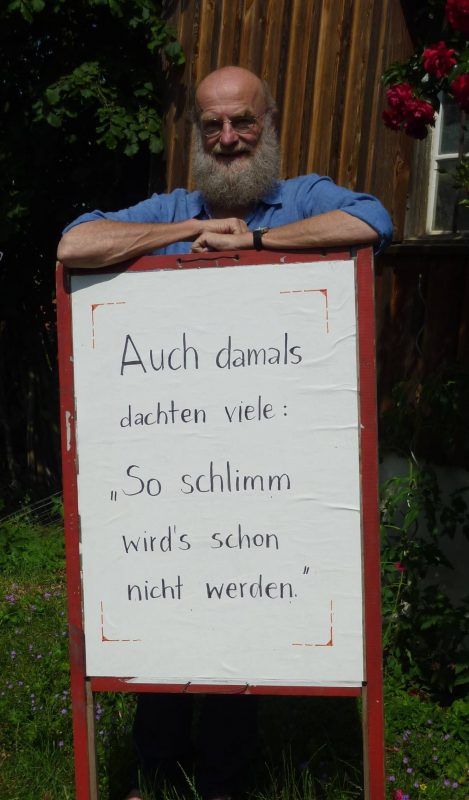 Auch damals
dachten viele:
„So schlimm
wird's schon
nicht werden."